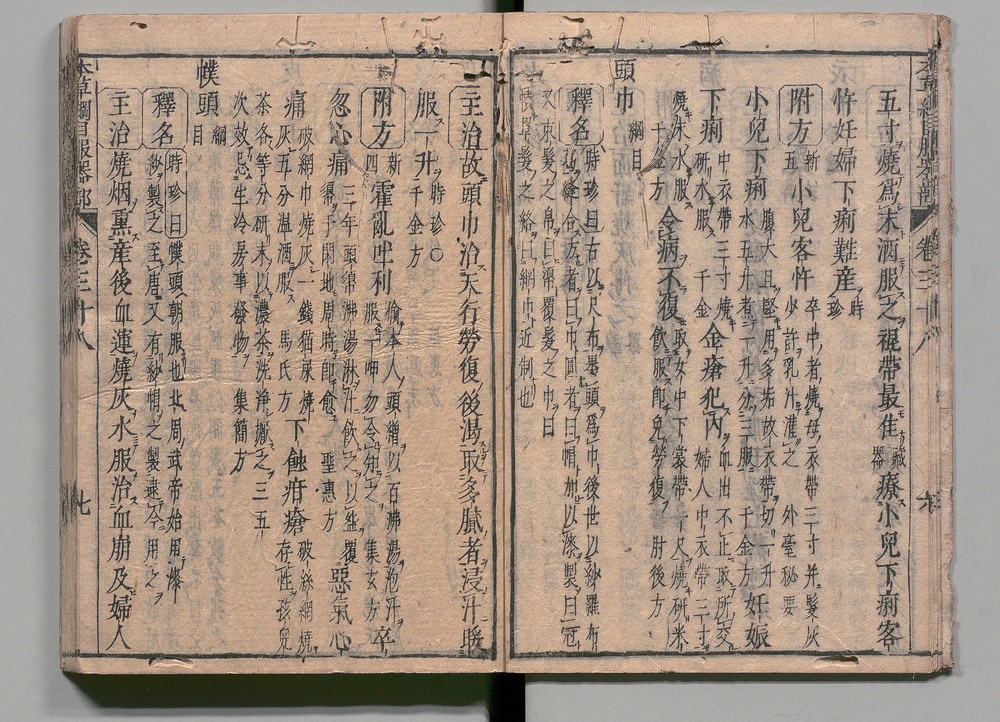 本草綱目服器部 卷三十八 六
五寸燒爲末酒服之褌帶最佳藏器療小兒下痢客
忤妊婦下痢難產時珍
附方新五小兒客忤卒中者燒母衣帶三寸并髮灰少許乳汁灌之外臺秘要
小兒下痢腹大且堅用多垢故衣帶切一升水五升煮一升分三服千金方妊娠
下痢中衣帶三寸燒研水服千金金瘡犯內血出不止取所交婦人中衣帶三寸
燒末水服千金方令病不復取女中下裳帶一尺燒研米飲服即免勞復肘後方
頭巾綱目
釋名時珍曰古以尺布裹頭爲巾後世以紗羅布葛縫合方者曰巾圓者曰帽加以漆製曰冠
又束髮之帛曰覆髮之巾曰
髮之絡曰網巾近制也
主治故頭巾治天行勞復後渴取多膩者浸汁暖
服一升時珍○千金方
附方新四霍亂吐利偷本人頭繒以百沸湯泡汁服一呷勿令知之集玄方卒
忽心痛三年頭沸湯淋汁飲之以盌覆於閑地周時即愈聖惠方惡氣心
痛破網巾燒灰一錢猫屎燒灰五分溫酒服馬氏方下蝕疳瘡破絲網燒存性孩兒
茶各等分研末以濃茶洗淨搽之三五次效忌生冷房事發物集簡方
幞頭綱目
釋名時珍曰幞頭朝服也北周武帝始用漆紗製之至唐又有紗帽之製逮今用之
主治燒烟熏產後血運燒灰水服治血崩及婦人
本草綱目服器部 卷三十八 七